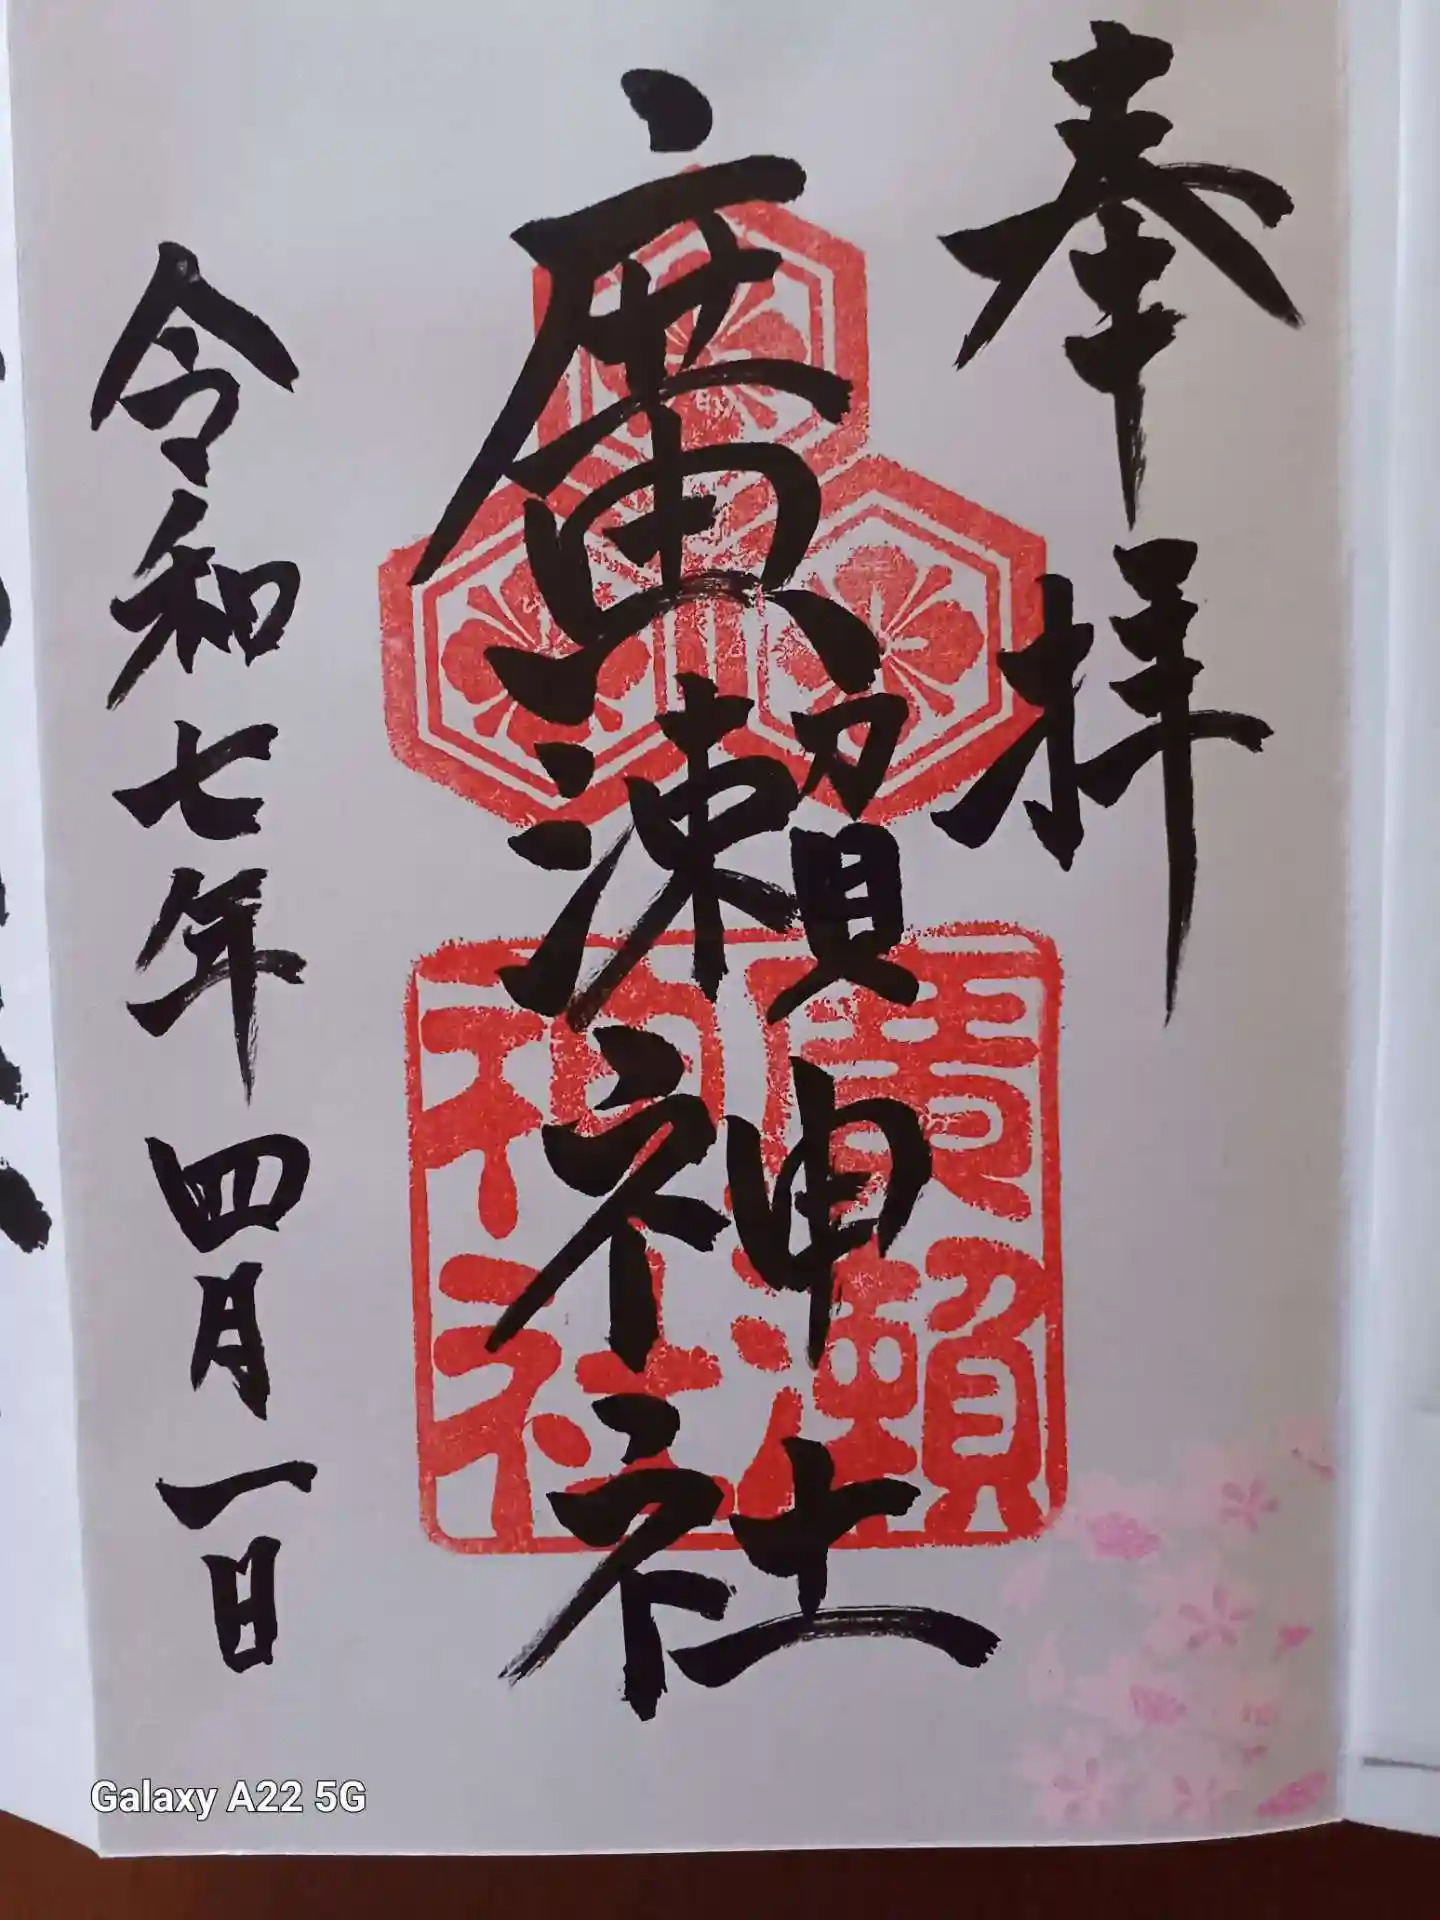 奉拝
廣瀬神社
廣瀬神社
令和七年四月一日
Galaxy A22 5G